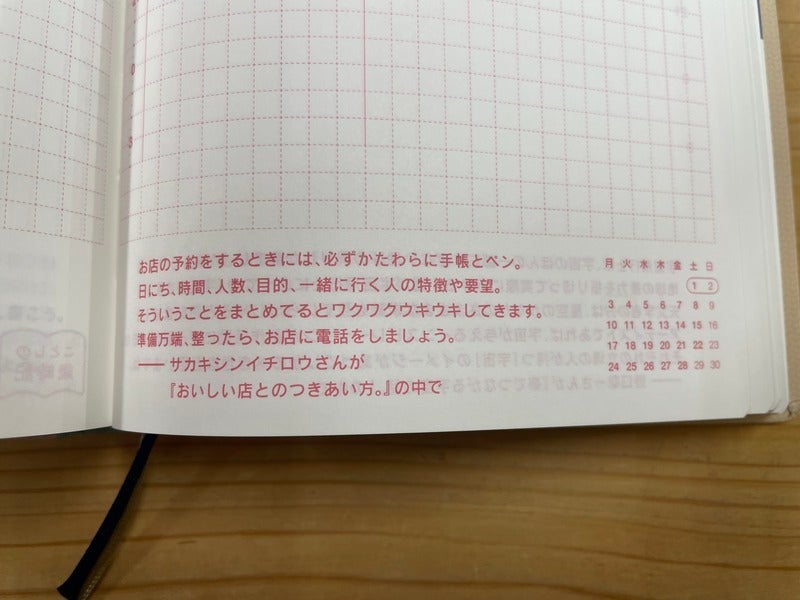 0
3
お店の予約をするときには、必ずかたわらに手帳とペン。
日にち、時間、人数、目的、一緒に行く人の特徴や要望。
そういうことをまとめてるとワクワクウキウキしてきます。
準備万端、整ったら、お店に電話をしましょう。
── サカキシンイチロウさんが
『おいしい店とのつきあい方。』の中で
月 火 水 木 金 土 日
1 2
3 4 5 6 7 8 9
10 11 12 13 14 15 16
17 18 19 20 21 22 23
24 25 26 27 28 29 30